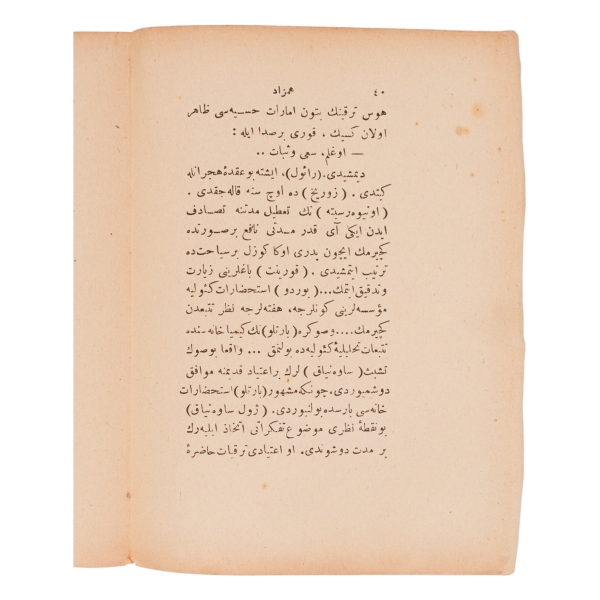 ٤٠ همزاد
هوس ترقينك بتون امارات حسيه سى ظاهر
اولان كسيك . قورى برصدا ايله :
— اوغلم. سعى وثبات ..
ديمشيدى. (رائول)، ايشته بوعقدهٔ هجرانله
كيتدى . ( زوريخ ) ده اوچ سنه قاله جقدى .
( اونيوه رسيته ) نك تعطيل مدتنه تصادف
ايدن ايكى آى قدر مدتى نافع برصورتده
كچيرمك ايچون پدرى اوكا كوزل برسياحت ده
ترتيب ايتمشيدى . ( قورينت ) باغلرينى زيارت
وتدقيق ايتمك ... ( بوردو ) استحضارات كئوليه
مؤسسه لرينى كونلرجه، هفته لرجه نظر تتبعدن
كچيرمك .... وصوكره (بارتلو) نك كيميا خانه سنده
تتبعات تحليليهٔ كئوليه ده بولنمق ... واقعا بوصوك
تشبث ( ساوه نياق ) لرك براعتياد قديمنه موافق
دوشمبوردى. چونكه مشهور (بارتلو) استحضارات
خانه سى پارسده بولنبوردى. ( ژول ساوه نياق )
بونقطهٔ نظرى موضوع تفكراتى اتخاذ ايليه رك
بر مدت دوشوندى. او اعتيادى ترقيات حاضرهٔ